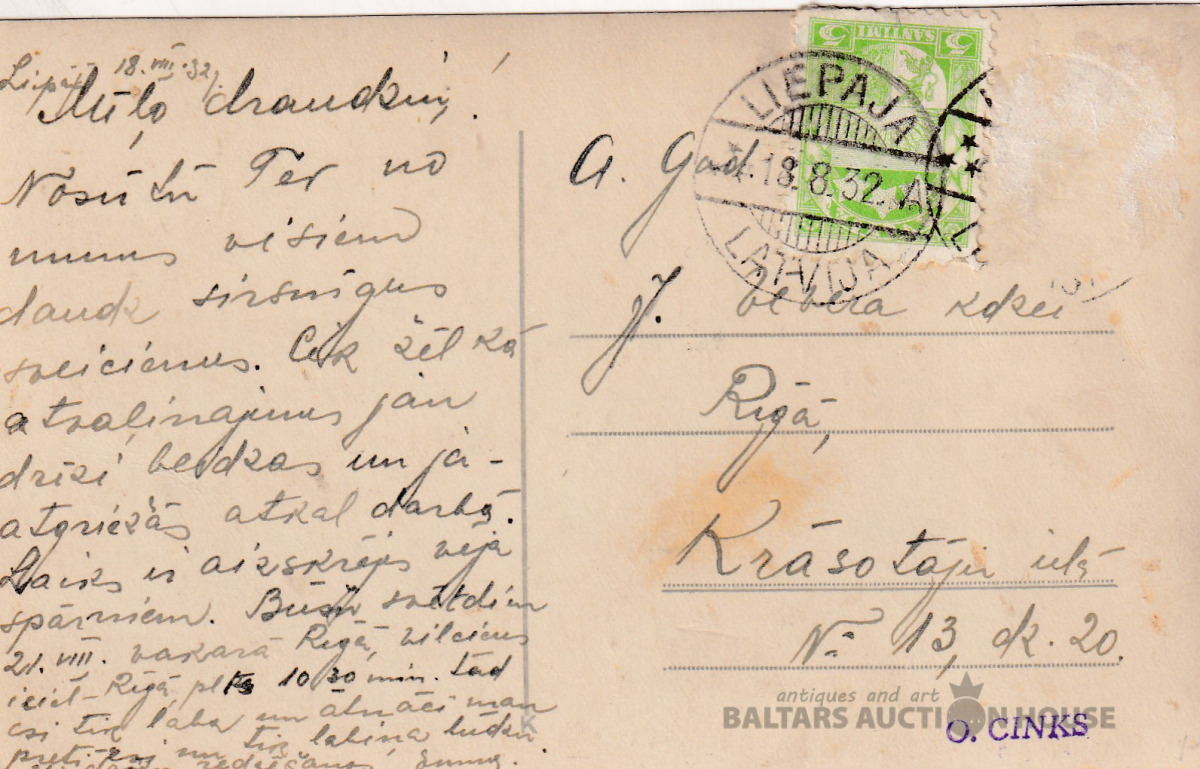 Liepājā 18.VIII.32.
Mīļo draudziņ!
Nosūtu Tev no
mums visiem
daudz sirsnīgus
sveicienus. Cik žēl ka
atvaļinajums jau
drīzi beidzas un jā-
atgriežās atkal darbā.
Laiks ir aizskrējis vēja
spārniem. Būšu svētdien
21. VIII. vakarā Rīgā, vilciens
ieiet Rīgā plkst 10 30 min. Tad
esi tik laba un atnāci man
pretī,
5 SANTIMI 5
LIEPAJA
18.8.32.
LATVIJA
A. God.
J. Vebera kdzei
Rīgā,
Krāsotāju ielā
№ 13, dz. 20.
antiques and art
BALTARS AUCTION HOUSE
O. CINKS